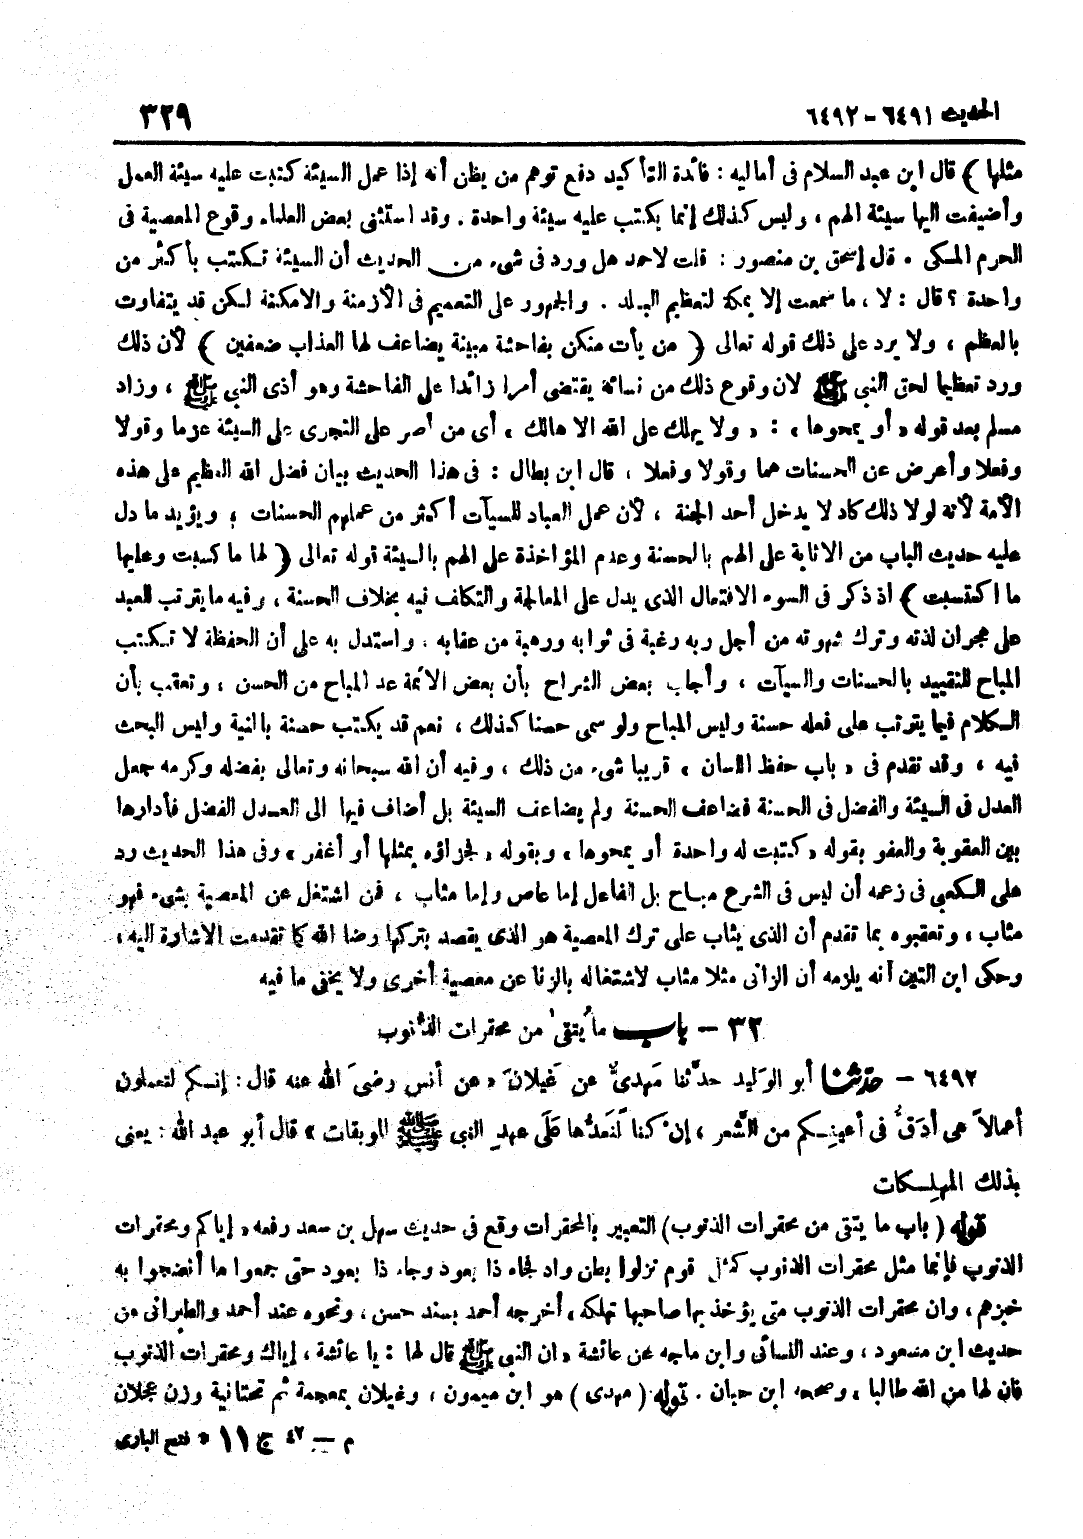 الحديث ٦٤٩١ - ٦٤٩٢
٣٢٩
مثلها ) قال ابن عبد السلام فى أماليه : فائدة التأكيد دفع توهم من يظن أنه إذا عمل السيئة كتبت عليه سيئة العمل
وأضيفت اليها سيئة الهم ، وليس كذلك إنما يكتب عليه سيئة واحدة . وقد استثنى بعض العلماء وقوع المعصية فى
الحرم المكى . قال إسحق بن منصور : قلت لاحمد هل ورد فى شىء من الحديث أن السيئة تكتب بأكثر من
واحدة ؟ قال : لا ، ما سمعت إلا بمكة لتعظيم البلد . والجمهور على التعميم فى الأزمنة والامكنة لكن قد يتفاوت
بالعظم ، ولا يرد على ذلك قوله تعالى ( من يأت منكن بفاحشة مبينة يضاعف لها العذاب ضعفين ) لأن ذلك
ورد تعظيما لحق النبى ﷺ لان وقوع ذلك من نسائه يقتضى أمرا زائدا على الفاحشة وهو أذى النبى ﷺ ، وزاد
مسلم بعد قوله « أو يمحوها » : « ولا يهلك على الله الا هالك » أى من أصر على التجرى على السيئة عزما وقولا
وفعلا وأعرض عن الحسنات هما وقولا وفعلا ، قال ابن بطال : فى هذا الحديث بيان فضل الله العظيم على هذه
الأمة لأنه لولا ذلك كاد لا يدخل أحد الجنة ، لأن عمل العباد للسيآت أكثر من عملهم الحسنات ؛ ويؤيد ما دل
عليه حديث الباب من الاثابة على الهم بالحسنة وعدم المؤاخذة على الهم بالسيئة قوله تعالى ( لها ما كسبت وعليها
ما اكتسبت ) اذ ذكر فى السوء الافتعال الذى يدل على المعالجة والتكلف فيه بخلاف الحسنة ، وفيه ما يترتب للعبد
على هجران لذته وترك شهوته من أجل ربه رغبة فى ثوابه ورهبة من عقابه ، واستدل به على أن الحفظة لا تكتب
المباح للتقييد بالحسنات والسيآت ، وأجاب بعض الشراح بأن بعض الأئمة عد المباح من الحسن ، وتعقب بأن
الكلام فيما يترتب على فعله حسنة وليس المباح ولو سمى حسنا كذلك ، نعم قد يكتب حسنة بالنية وليس البحث
فيه ، وقد تقدم فى « باب حفظ اللسان » قريبا شىء من ذلك ، وفيه أن الله سبحانه وتعالى بفضله وكرمه جعل
العدل فى السيئة والفضل فى الحسنة فضاعف الحسنة ولم يضاعف السيئة بل أضاف فيها الى العدل الفضل فأدارها
بين العقوبة والعفو بقوله « كتبت له واحدة أو يمحوها » وبقوله « فجزاؤه بمثلها أو أغفر » وفى هذا الحديث رد
على الكعبى فى زعمه أن ليس فى الشرع مباح بل الفاعل إما عاص وإما مثاب ، فمن اشتغل عن المعصية بشىء فهو
مثاب ، وتعقبوه بما تقدم أن الذى يثاب على ترك المعصية هو الذى يقصد بتركها رضا الله كما تقدمت الاشارة اليه ،
وحكى ابن التين أنه يلزمه أن الزانى مثلا مثاب لاشتغاله بالزنا عن معصية أخرى ولا يخفى ما فيه
٣٢ - باب ما يُتقى من محقرات الذنوب
٦٤٩٢ - حدثنا أبو الوَليد حدَّثنا مَهدىٌّ عن غَيلانَ « عن أنس رضىَ الله عنه قال : إنكم لتعملون
أعمالاً هى أدَقُّ فى أعينِكم من الشَّعر ، إن كنا لَنعدُّها عَلَى عهدِ النبى ﷺ الموبقات » قال أبو عبد الله : يعنى
بذلك المهلِكات
قوله ( باب ما يتقى من محقرات الذنوب ) التعبير بالمحقرات وقع فى حديث سهل بن سعد رفعه « إياكم ومحقرات
الذنوب فإنما مثل محقرات الذنوب كمثل قوم نزلوا بطن واد فجاء ذا بعود وجاء ذا بعود حتى جمعوا ما أنضجوا به
خبزهم ، وان محقرات الذنوب متى يؤخذ بها صاحبها تهلكه » أخرجه أحمد بسند حسن ، ونحوه عند أحمد والطبرانى من
حديث ابن مسعود ، وعند النسائى وابن ماجه عن عائشة « ان النبى ﷺ قال لها : يا عائشة ، إياك ومحقرات الذنوب
فان لها من الله طالبا » وصححه ابن حبان . قوله ( مهدى ) هو ابن ميمون ، وغيلان بمعجمة ثم تحتانية وزن عجلان
م - ٤٢ ج ١١ * فتح البارى